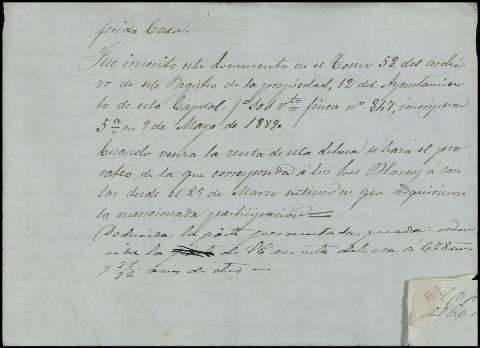 ferida Casa.
Fue inscrito este documento en el Tomo 58, del archi-
vo de este Registro de la propiedad, 12 del Ayuntamien-
to de esta Capital, fo. 202 vto finca nº 847, inscripcion
5ª en 9 de Mayo de 1889.
Cuando venza la renta de esta dehesa se hará el pro-
rateo de la que corresponda á los Sres Blasco, á con-
tar desde el 25 de Marzo ultimo en que adquirieron
la mencionada participacion.
Deducida la parte permutada, queda redu-
cida la de H en esta dehesa a 678
y de otra